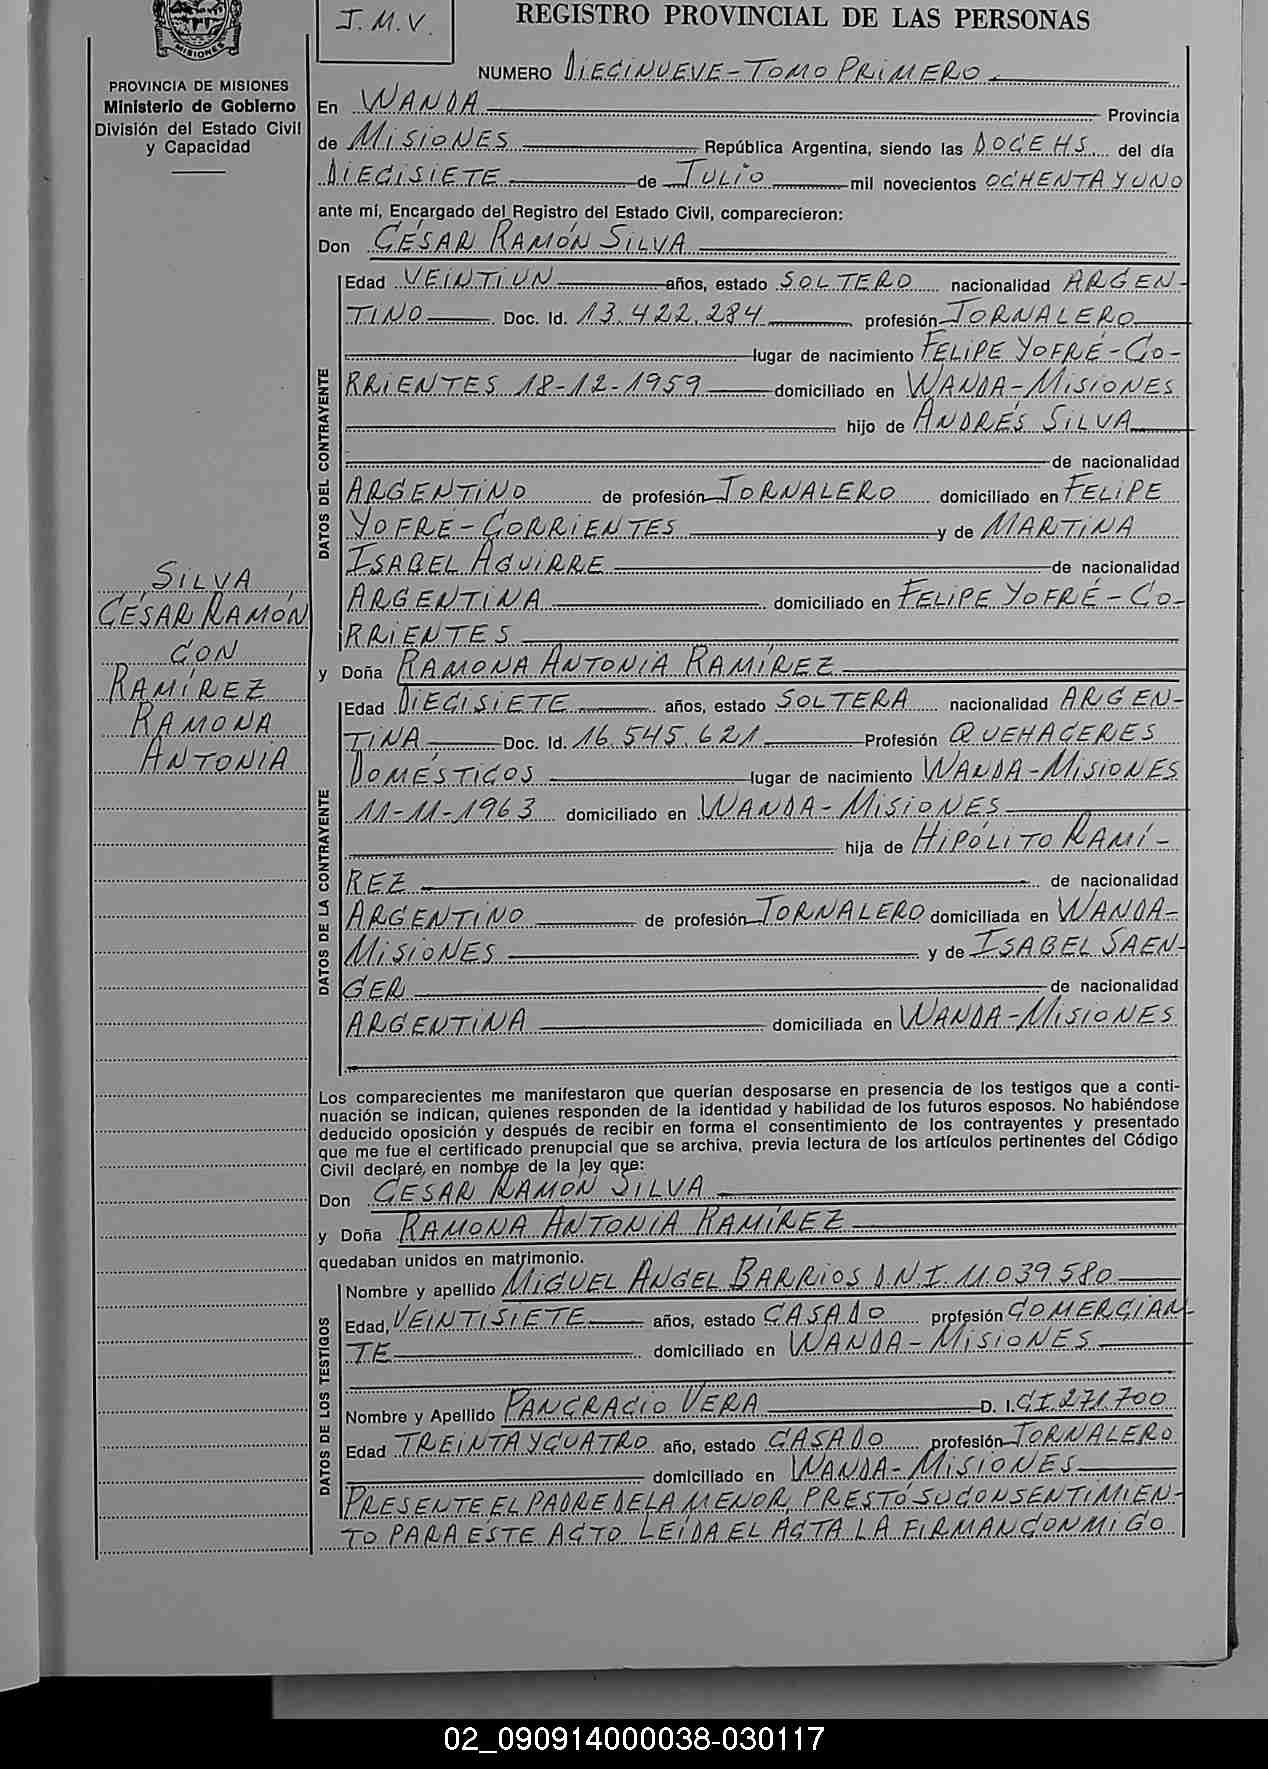 MISIONES
J.M.V.
REGISTRO PROVINCIAL DE LAS PERSONAS
PROVINCIA DE MISIONES
Ministerio de Gobierno
División del Estado Civil
y Capacidad
SILVA
CÉSAR RAMÓN
CON
RAMÍREZ
RAMONA
ANTONIA
NUMERO DIECINUEVE-TOMO PRIMERO
En WANDA Provincia
de MISIONES República Argentina, siendo las DOCE HS. del día
DIECISIETE de JULIO mil novecientos OCHENTA Y UNO
ante mí, Encargado del Registro del Estado Civil, comparecieron:
Don CÉSAR RAMÓN SILVA
DATOS DEL CONTRAYENTE
Edad VEINTIUN años, estado SOLTERO nacionalidad ARGEN-
TINO Doc. Id. 13.422.284 profesión JORNALERO
lugar de nacimiento FELIPE YOFRÉ-CO-
RRIENTES 18-12-1959 domiciliado en WANDA-MISIONES
hijo de ANDRÉS SILVA
de nacionalidad
ARGENTINO de profesión JORNALERO domiciliado en FELIPE
YOFRÉ-CORRIENTES y de MARTINA
ISABEL AGUIRRE de nacionalidad
ARGENTINA domiciliado en FELIPE YOFRÉ-CO-
RRIENTES
y Doña RAMONA ANTONIA RAMÍREZ
DATOS DE LA CONTRAYENTE
Edad DIECISIETE años, estado SOLTERA nacionalidad ARGEN-
TINA Doc. Id. 16.545.621 Profesión QUEHACERES
DOMÉSTICOS lugar de nacimiento WANDA-MISIONES
11-11-1963 domiciliado en WANDA-MISIONES
hija de HIPÓLITO RAMÍ-
REZ de nacionalidad
ARGENTINO de profesión JORNALERO domiciliada en WANDA-
MISIONES y de ISABEL SAEN-
GER de nacionalidad
ARGENTINA domiciliada en WANDA-MISIONES
Los comparecientes me manifestaron que querían desposarse en presencia de los testigos que a conti-
nuación se indican, quienes responden de la identidad y habilidad de los futuros esposos. No habiéndose
deducido oposición y después de recibir en forma el consentimiento de los contrayentes y presentado
que me fue el certificado prenupcial que se archiva, previa lectura de los artículos pertinentes del Código
Civil declaré, en nombre de la ley que:
Don CÉSAR RAMÓN SILVA
y Doña RAMONA ANTONIA RAMÍREZ
quedaban unidos en matrimonio.
DATOS DE LOS TESTIGOS
Nombre y apellido MIGUEL ANGEL BARRIOS D.N.I. 11.039.580
Edad, VEINTISIETE años, estado CASADO profesión COMERCIAN-
TE domiciliado en WANDA-MISIONES
Nombre y Apellido PANCRACIO VERA D. I. C.I. 271.700
Edad TREINTA Y CUATRO año, estado CASADO profesión JORNALERO
domiciliado en WANDA-MISIONES
PRESENTE EL PADRE DE LA MENOR, PRESTÓ SU CONSENTIMIEN-
TO PARA ÉSTE ACTO LEÍDA EL ACTA LA FIRMAN CONMIGO
02_090914000038-030117